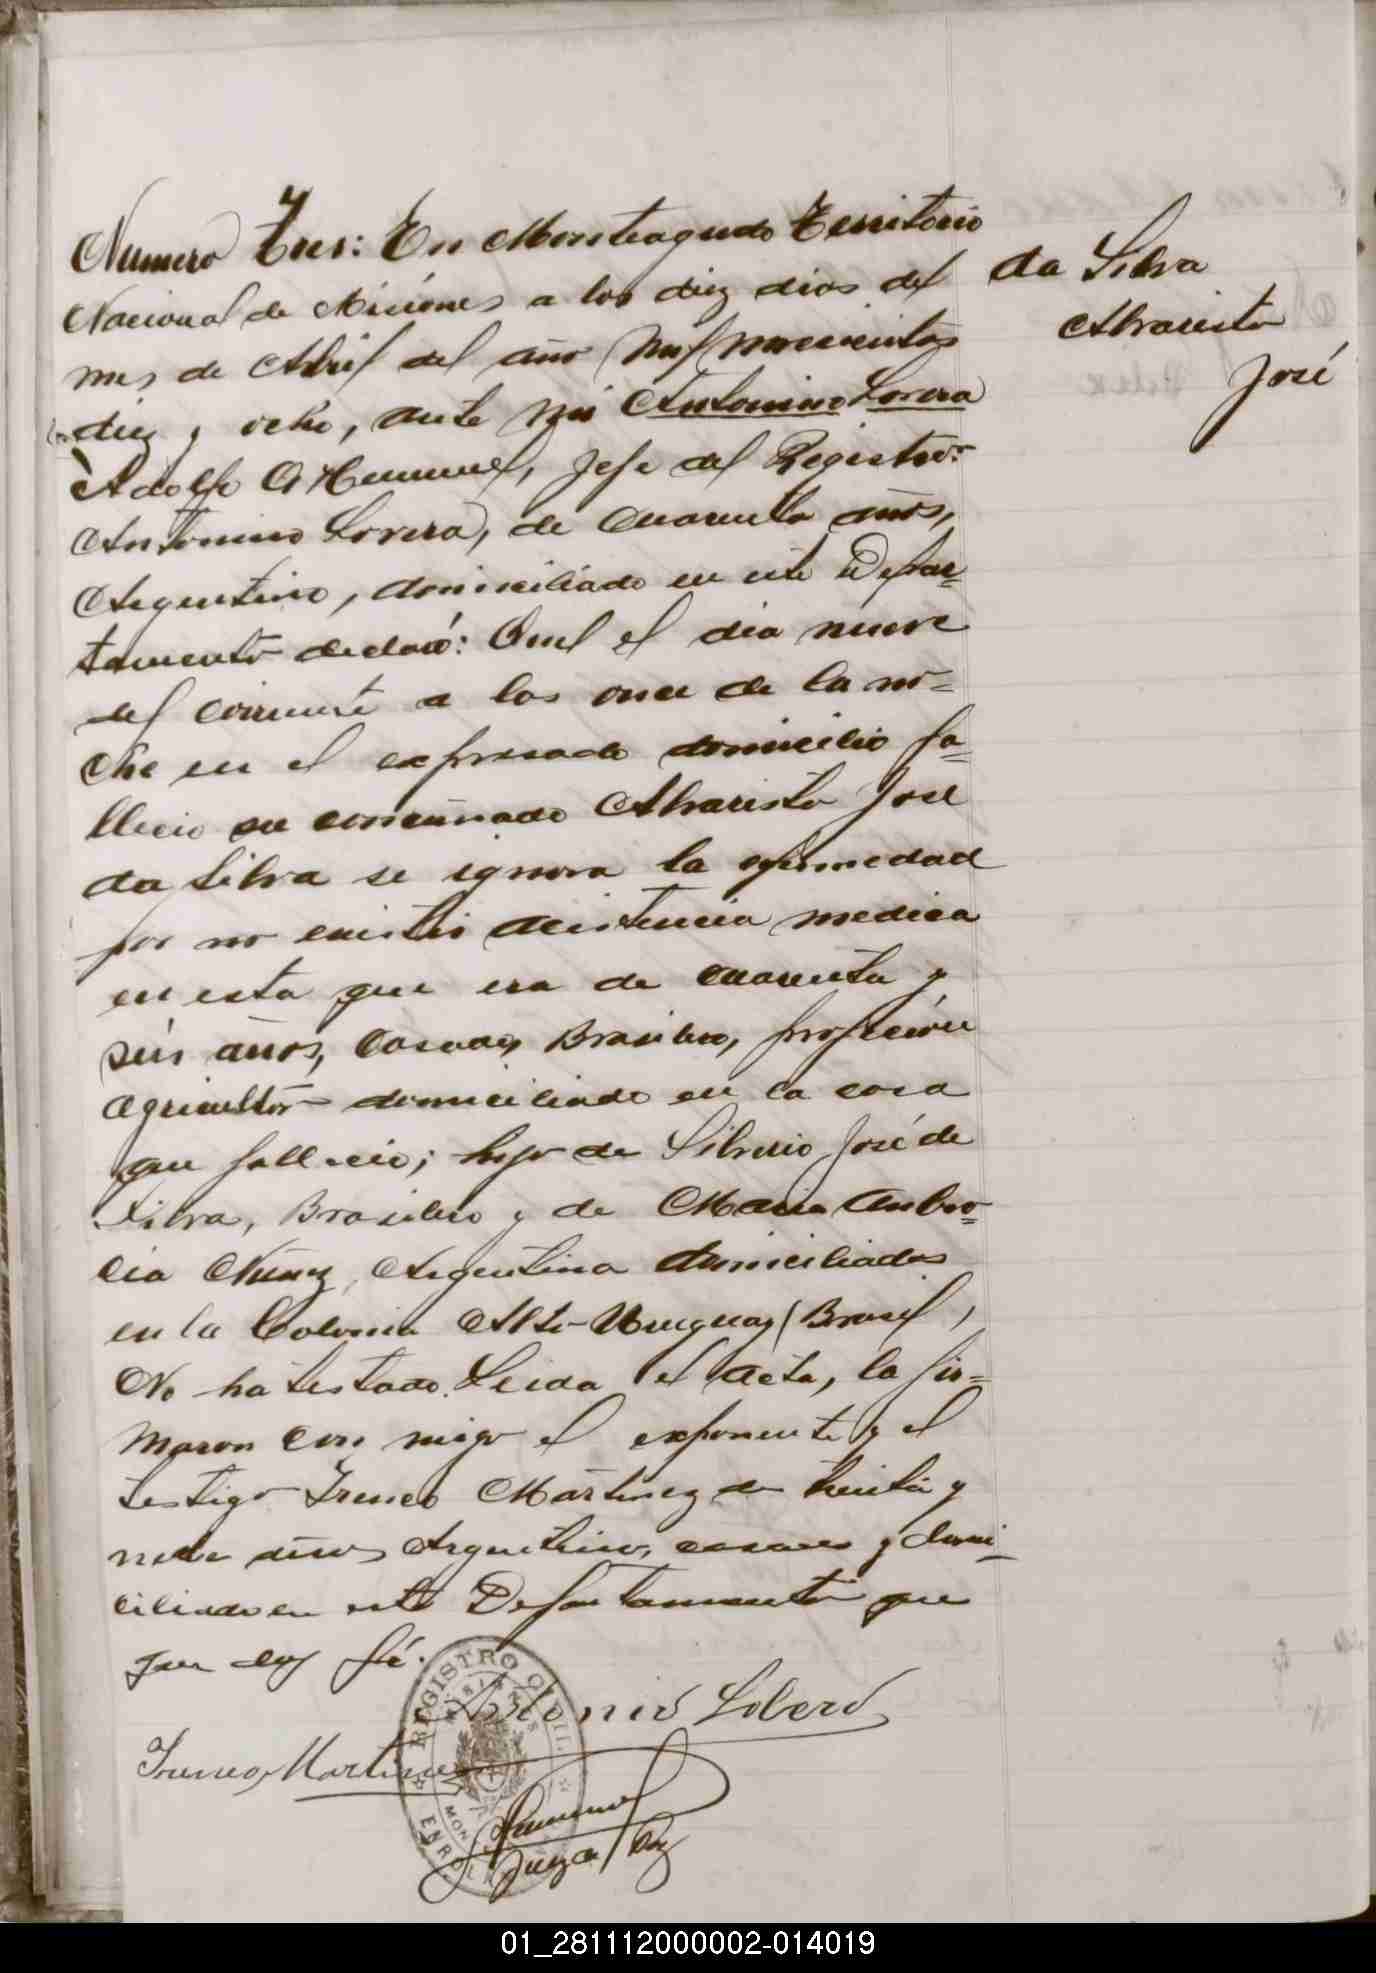 Numero Tres: En Monteagudo Territorio
Nacional de Misiones a los diez dias del
mes de Abril del año Mil novecientos
diez y ocho, ante mi Antonino Lovera
Adolfo A Hummel, Jefe del Registro:
Antonino Lovera, de cuarenta años,
Argentino, domiciliado en este Depar=
tamento declaró: Que el dia nueve
del corriente a las once de la no=
che en el expresado domicilio fa=
llecio su concuñado Alvaristo José
da Silva se ignora la efermedad
por no existir acistencia medica
en esta que era de cuarenta y
seis años, casado, Brasilero, profeción
agricultor domiciliado en la casa
que fallecio; hijo de Silverio José de
Silva, Brasilero y de Maria Anbro=
cia Nuñez, Argentina domiciliados
en la Colonia Alto-Uruguay (Brasil,
No ha testado. Leida el acta, la fir=
maron con migo el exponente y el
testigo Ireneo Martinez de treinta y
nueve años Argentino, casado y domi=
ciliado en este Departamento que
que doy fé.
da Silva
Alvaristo
José
Antonio Loberá
Ireneo Martinez
REGISTRO CIVIL
MISIONES
MON
ENROL
Hummel
Juez de Paz
01_281112000002-014019